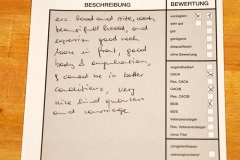 BESCHREIBUNG
BEWERTUNG
exc. head and bite, coat,
beautiful head, and
expression good neck
loin in front, good
body & angulation,
I could be in better
conditions, very
nice hind quarters
and carriage
vorzüglich
sehr gut
gut
genügend
disqualifiziert
ohne Bewertung
Jugendbester
CACA
Res. CACA
CACIB
Res. CACIB
BOB
BOS
Veteranensieger
Res. Veteranensieger
ohne Titel